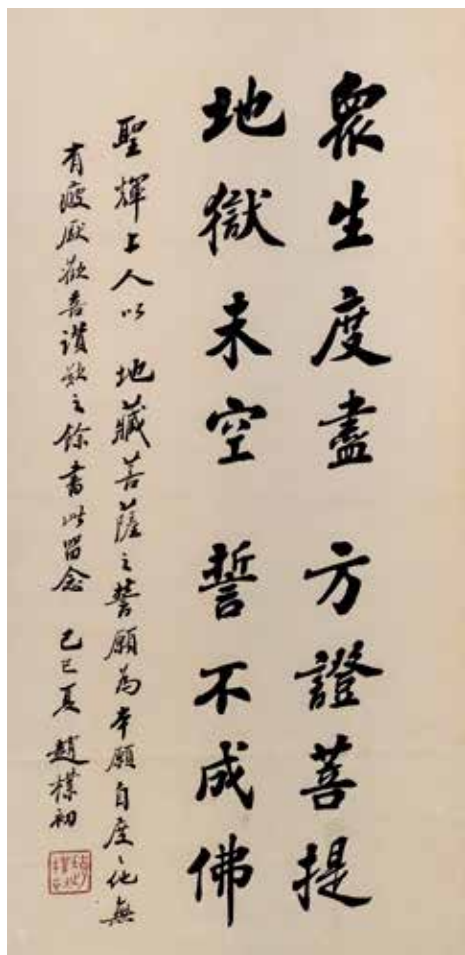 眾生度盡 方證菩提
地獄未空 誓不成佛
聖輝上人以 地藏菩薩之誓願為本願自度、化無
有疲厭歡喜讚歎之餘書此留念 己巳夏 趙樸初